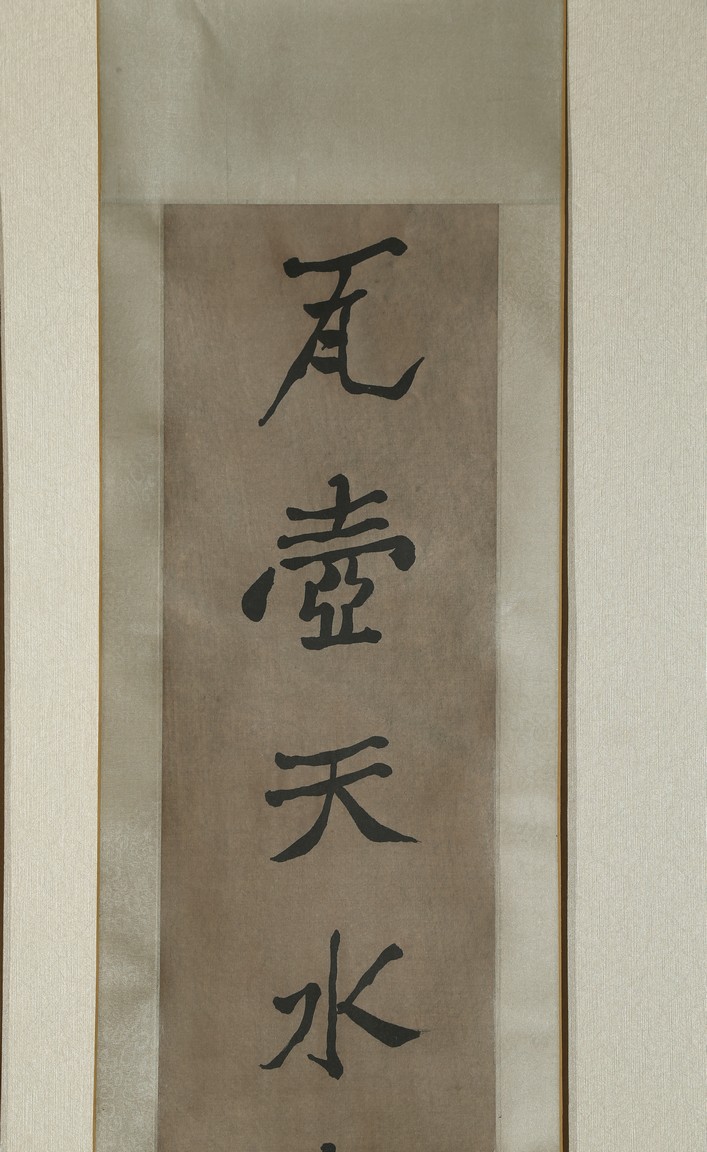 瓦壺天水